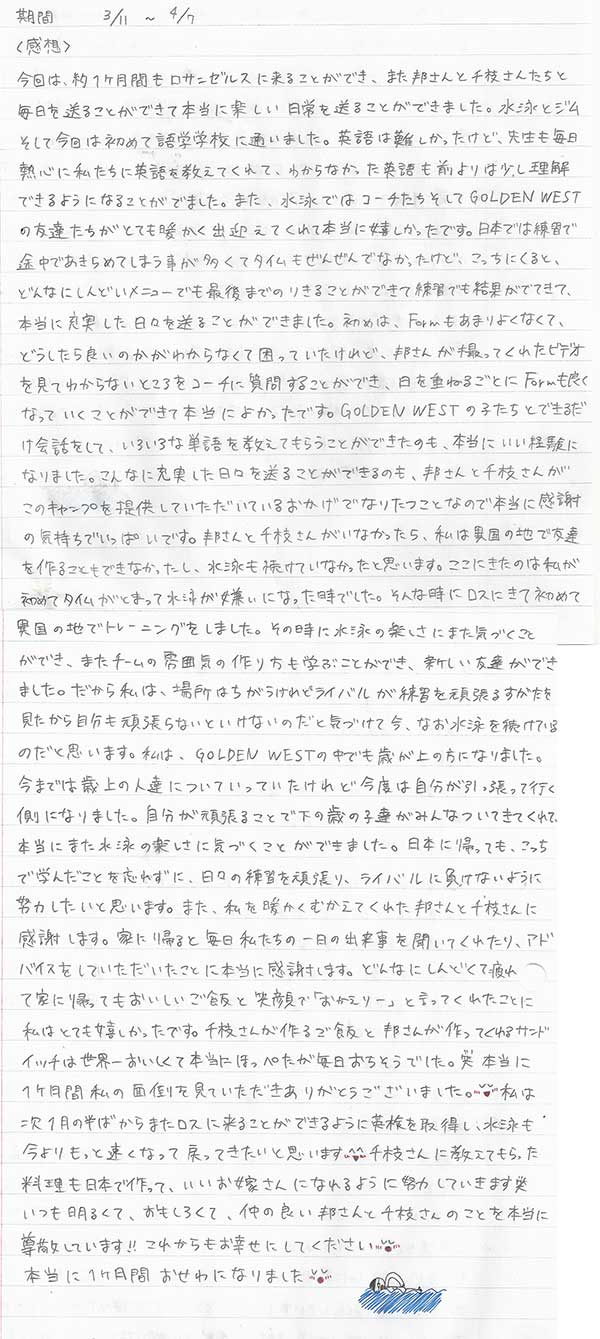 期間　3/11 ～ 4/7
〈感想〉
今回は、約1ヶ月間もロサンゼルスに来ることができ、また邦さんと千枝さんたちと
毎日を送ることができて本当に楽しい日常を送ることができました。水泳とジム
そして今回は初めて語学学校に通いました。英語は難しかったけど、先生も毎日
熱心に私たちに英語を教えてくれて、わからなかった英語も前よりは少し理解
できるようになることがでました。また、水泳ではコーチたちそしてGOLDEN WEST
の友達たちがとても暖かく出迎えてくれて本当に嬉しかったです。日本では練習で
途中であきらめてしまう事が多くてタイムもぜんぜんでなかったけど、こっちにくると、
どんなにしんどいメニューでも最後までのりきることができて練習でも結果がでてきて、
本当に充実した日々を送ることができました。初めは、Formもあまりよくなくて、
どうしたら良いのかがわからなくて困っていたけれど、邦さんが撮ってくれたビデオ
を見てわからないところをコーチに質問することができ、日を重ねるごとにFormも良く
なっていくことができて本当によかったです。GOLDEN WESTの子たちとできるだ
け会話をして、いろいろな単語を教えてもらうことができたのも、本当にいい経験に
なりました。こんなに充実した日々を送ることができるのも、邦さんと千枝さんが
このキャンプを提供していただいているおかげでなりたつことなので本当に感謝
の気持ちでいっぱいです。邦さんと千枝さんがいなかったら、私は異国の地で友達
を作ることもできなかったし、水泳も続けていなかったと思います。ここにきたのは私が
初めてタイムがとまって水泳が嫌いになった時でした。そんな時にロスにきて初めて
異国の地でトレーニングをしました。その時に水泳の楽しさにまた気づくこと
ができ、またチームの雰囲気の作り方も学ぶことができ、新しい友達ができ
ました。だから私は、場所はちがうけれどライバルが練習を頑張るすがたを
見たから自分も頑張らないといけないのだと気づけて今、なお水泳を続けている
のだと思います。私は、GOLDEN WESTの中でも歳が上の方になりました。
今までは歳上の人達についていっていたけれど今度は自分が引っ張って行く
側になりました。自分が頑張ることで下の歳の子達がみんなついてきてくれて、
本当にまた水泳の楽しさに気づくことができました。日本に帰っても、こっち
で学んだことを忘れずに、日々の練習を頑張り、ライバルに負けないように
努力したいと思います。また、私を暖かくむかえてくれた邦さんと千枝さんに
感謝します。家に帰ると毎日私たちの一日の出来事を聞いてくれたり、アド
バイスをしていただいたことに本当に感謝します。どんなにしんどくて疲れ
て家に帰ってもおいしいご飯と笑顔で「おかえりー」と言ってくれたことに
私はとても嬉しかったです。千枝さんが作るご飯と邦さんが作ってくれるサンド
イッチは世界一おいしくて本当にほっぺたが毎日おちそうでした。笑 本当に
1ヶ月間私の面倒を見ていただきありがとうございました。私は
次1月の半ばからまたロスに来ることができるように英検を取得し、水泳も
今よりもっと速くなって戻ってきたいと思います 千枝さんに教えてもらった
料理も日本で作って、いいお嫁さんになれるように努力していきます笑
いつも明るくて、おもしろくて、仲の良い邦さんと千枝さんのことを本当に
尊敬しています!! これからもお幸せにしてください
本当に1ヶ月間おせわになりました